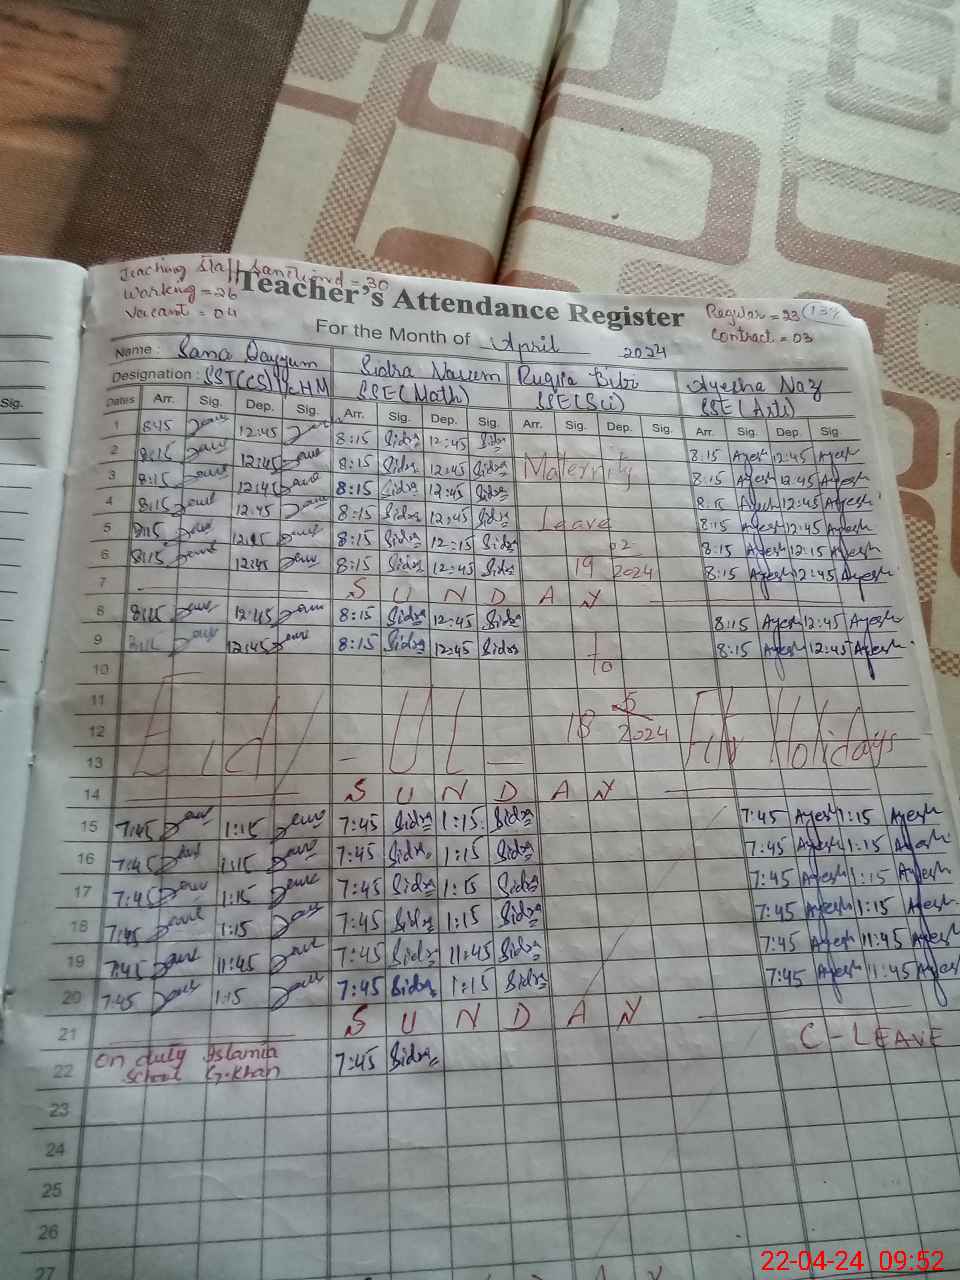 Teaching Staff Sanctioned = 30
Working = 26
Vacant = 04
Teacher's Attendance Register
Regular = 23
Contract = 03
For the Month of April 2024
Name : Sana Qayyum Sidra Naeem Ruqia Bibi Ayesha Naz
Designation : SST(CS) HM SSE(Math) SSE(Sci) SSE(Arts)
Sig.
Dates Arr. Sig. Dep. Sig. Arr. Sig. Dep. Sig. Arr. Sig. Dep. Sig. Arr. Sig. Dep. Sig.
1 8:15 12:45 8:15 Sidra 12:45 Sidra 8:15 Ayesh 12:45 Ayesh
2 8:15 12:45 8:15 Sidra 12:45 Sidra Maternity 8:15 Ayesh 12:45 Ayesh
3 8:15 12:45 8:15 Sidra 12:45 Sidra 8:15 Ayesh 12:45 Ayesh
4 8:15 12:45 8:15 Sidra 12:45 Sidra Leave 8:15 Ayesh 12:45 Ayesh
5 8:15 12:15 8:15 Sidra 12:15 Sidra 8:15 Ayesh 12:15 Ayesh
6 8:15 12:45 8:15 Sidra 12:45 Sidra 19 02 2024 8:15 Ayesh 12:45 Ayesh
7 S U N D A Y
8 8:15 12:45 8:15 Sidra 12:45 Sidra 8:15 Ayesh 12:45 Ayesh
9 8:15 12:45 8:15 Sidra 12:45 Sidra to 8:15 Ayesh 12:45 Ayesh
10
11
12 Eid - UL - 18 5 2024 Fitr Holidays
13
14 S U N D A Y
15 7:45 1:15 7:45 Sidra 1:15 Sidra 7:45 Ayesh 1:15 Ayesh
16 7:45 1:15 7:45 Sidra 1:15 Sidra 7:45 Ayesh 1:15 Ayesh
17 7:45 1:15 7:45 Sidra 1:15 Sidra 7:45 Ayesh 1:15 Ayesh
18 7:45 1:15 7:45 Sidra 1:15 Sidra 7:45 Ayesh 1:15 Ayesh
19 7:45 11:45 7:45 Sidra 11:45 Sidra 7:45 Ayesh 11:45 Ayesh
20 7:45 1:15 7:45 Sidra 1:15 Sidra 7:45 Ayesh 11:45 Ayesh
21 S U N D A Y
22 On duty Islamia School G.Khan 7:45 Sidra C - LEAVE
23
24
25
26
27
A Y
22-04-24 09:52